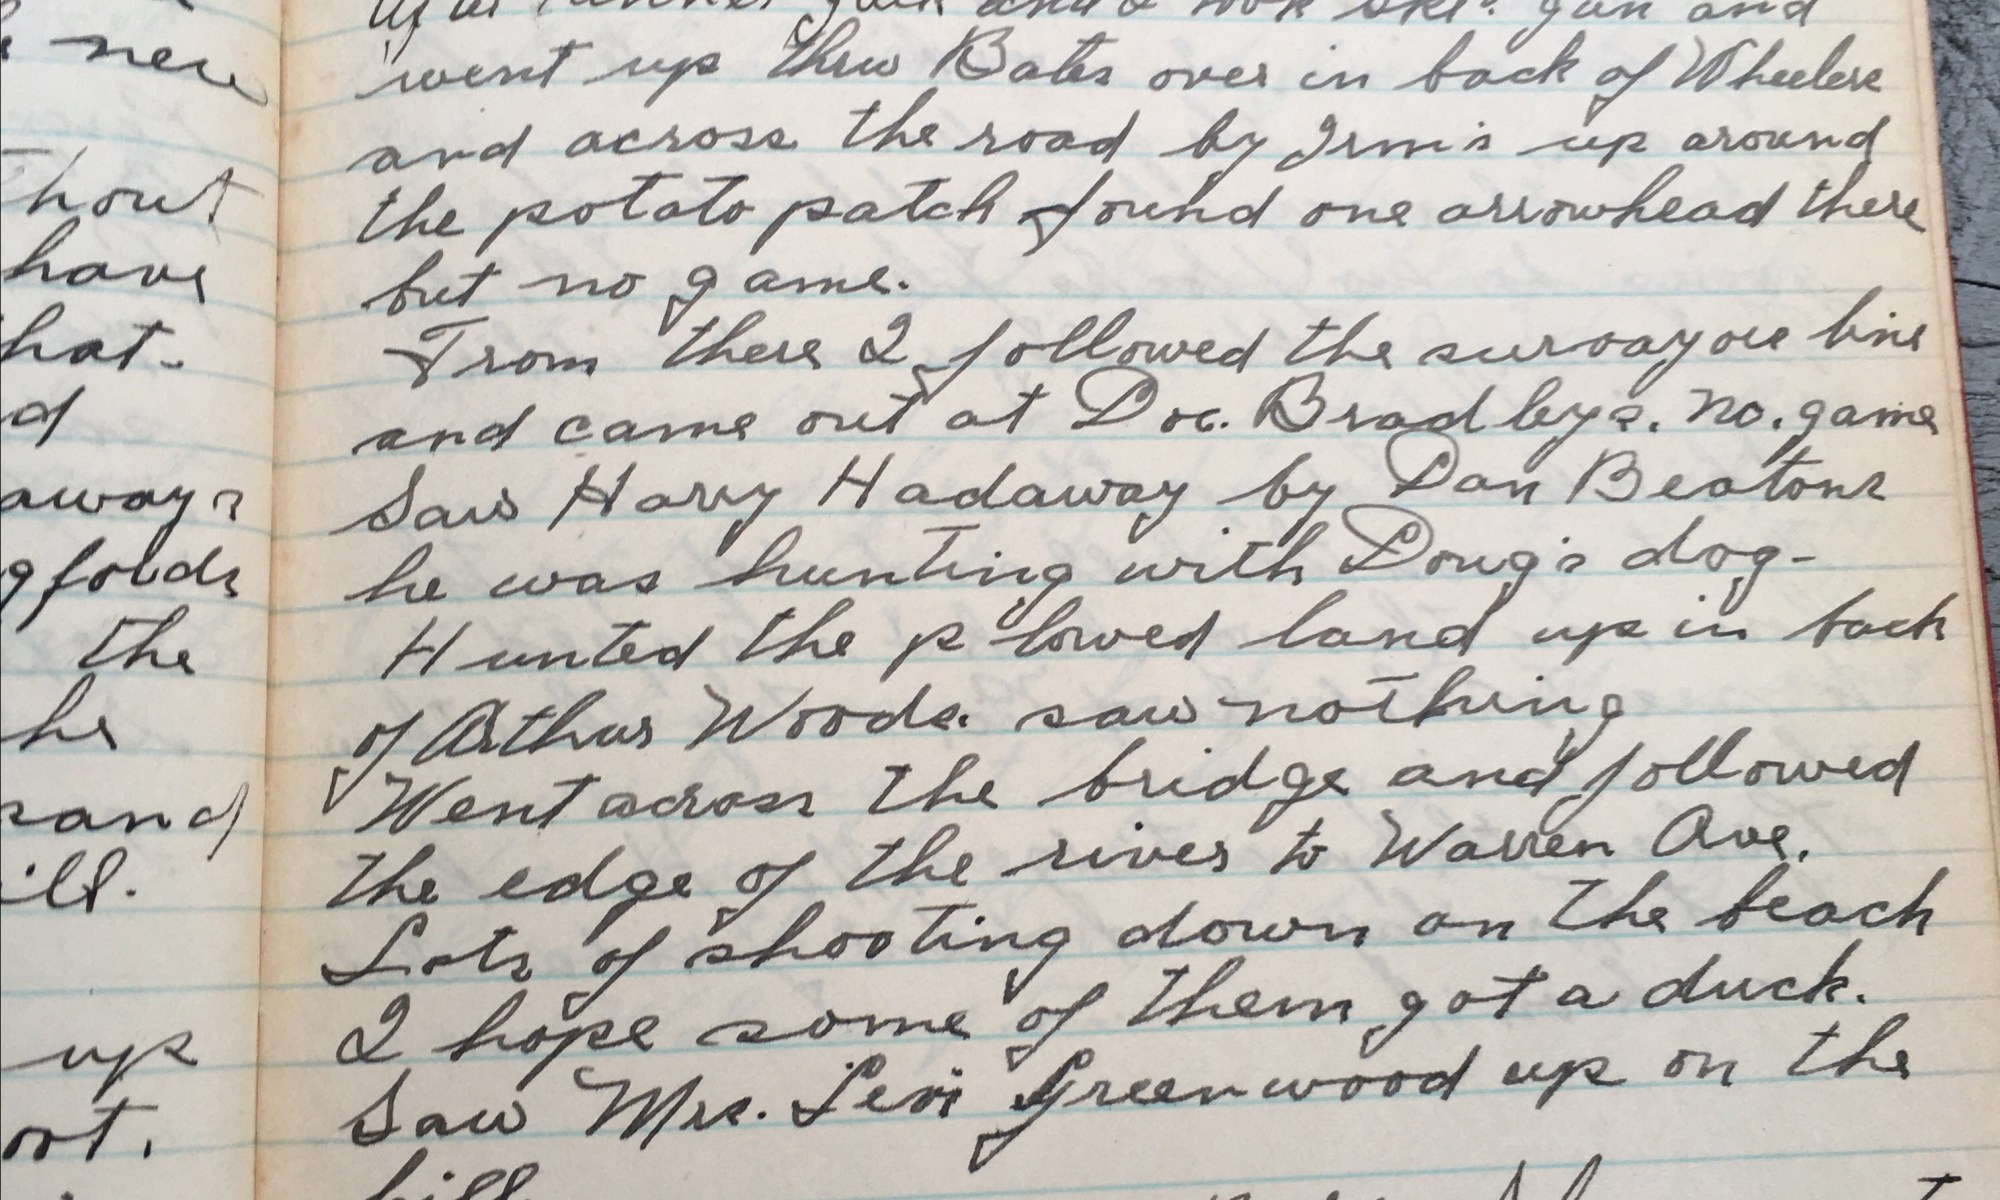 new
thout
have
hat-
d
aways
the
he
sand
ill.
up
ort.
and I took gun and
went up thru Bates over in back of Wheelers
and across the road by Irm's up around
the potato patch found one arrowhead there
but no game.
From there I followed the survayors line
and came out at Doc. Bradleys. no. game
Saw Harry Hadaway by Dan Beatons
he was hunting with Doug's dog-
Hunted the plowed land up in back
of Arthur Woods. saw nothing
Went across the bridge and followed
the edge of the river to Warren Ave.
Lots of shooting down on the beach
I hope some of them got a duck.
Saw Mrs. Levi Greenwood up on the
hill